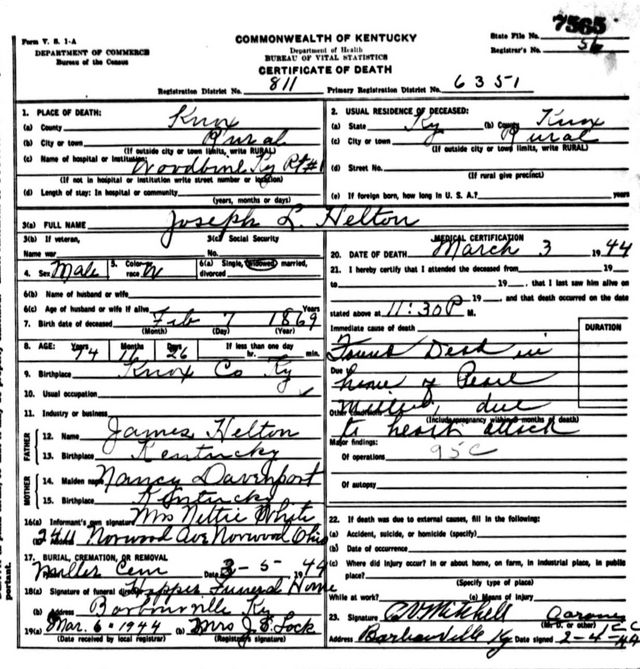 7565
Form V. S. 1-A
DEPARTMENT OF COMMERCE
Bureau of the Census
COMMONWEALTH OF KENTUCKY
Department of Health
BUREAU OF VITAL STATISTICS
CERTIFICATE OF DEATH
State File No.
Registrar's No. 56
Registration District No. 811 Primary Registration District No. 6351
1. PLACE OF DEATH:
(a) County Knox
(b) City or town Rural
(If outside city or town limits, write RURAL)
(c) Name of hospital or institution: Woodbine Ky Rt #1
(If not in hospital or institution write street number or location)
(d) Length of stay: In hospital or community
(years, months or days)
2. USUAL RESIDENCE OF DECEASED:
(a) State Ky (b) County Knox
(c) City or town Rural
(If outside city or town limits, write RURAL)
(d) Street No.
(If rural give precinct)
(e) If foreign born, how long in U. S. A.? years
3(a) FULL NAME Joseph L. Helton
3(b) If veteran, Name war
3(c) Social Security No.
4. Sex Male 5. Color or race W 6(a) Single, widowed, married, divorced
6(b) Name of husband or wife
6(c) Age of husband or wife if alive Years
7. Birth date of deceased Feb 7 1869
(Month) (Day) (Year)
8. AGE: Years Months Days If less than one day
74 26 hr. min.
9. Birthplace Knox Co Ky
10. Usual occupation
11. Industry or business
FATHER
12. Name James Helton
13. Birthplace Kentucky
MOTHER
14. Maiden name Nancy Davenport
15. Birthplace Kentucky
16(a) Informant's own signature Mrs Nettie White
(b) Address Norwood Ave Norwood Ohio
17. BURIAL, CREMATION, OR REMOVAL
Miller Cem Date 3-5-1944
18(a) Signature of funeral director Hopper Funeral Home
(b) Address Barbourville Ky
19(a) Mar. 6-1944 (b) Mrs J. F. Lock
(Date received by local registrar) (Registrar's signature)
MEDICAL CERTIFICATION
20. DATE OF DEATH March 3 1944
21. I hereby certify that I attended the deceased from 19
to 19 , that I last saw him alive on
19 , and that death occurred on the date
stated above at 11:30 P M.
Immediate cause of death DURATION
Found Dead in
Due to home of Pearl
due
Other Conditions
(Include pregnancy within 3 months of death)
to heart attack
Major findings: 95C
Of operations
Of autopsy
22. If death was due to external causes, fill in the following:
(a) Accident, suicide, or homicide (specify)
(b) Date of occurrence
(c) Where did injury occur? in or about home, on farm, in industrial place, in public place?
(Specify type of place)
While at work? (e) Means of injury
23. Signature C V Mitchell
(M. D. or other)
Address Barbourville Ky Date signed 2-4-44
portant.